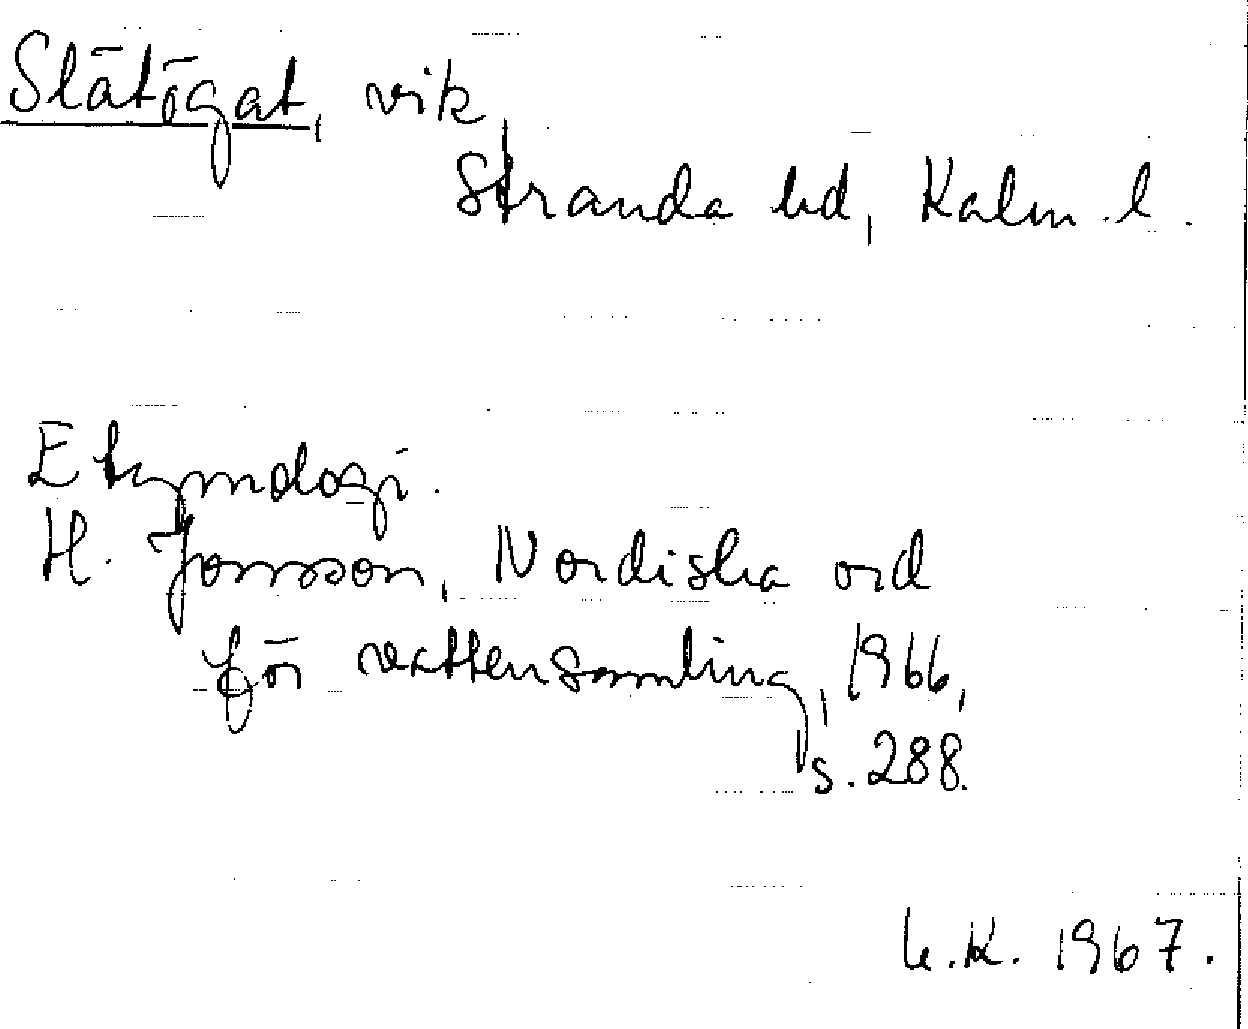 Slätögat, vik
Stranda hd, Kalm. l.
Etymologi.
H. Jonsson, Nordiska ord
för vattensamling, 1966,
s. 288.
h.K. 1967.